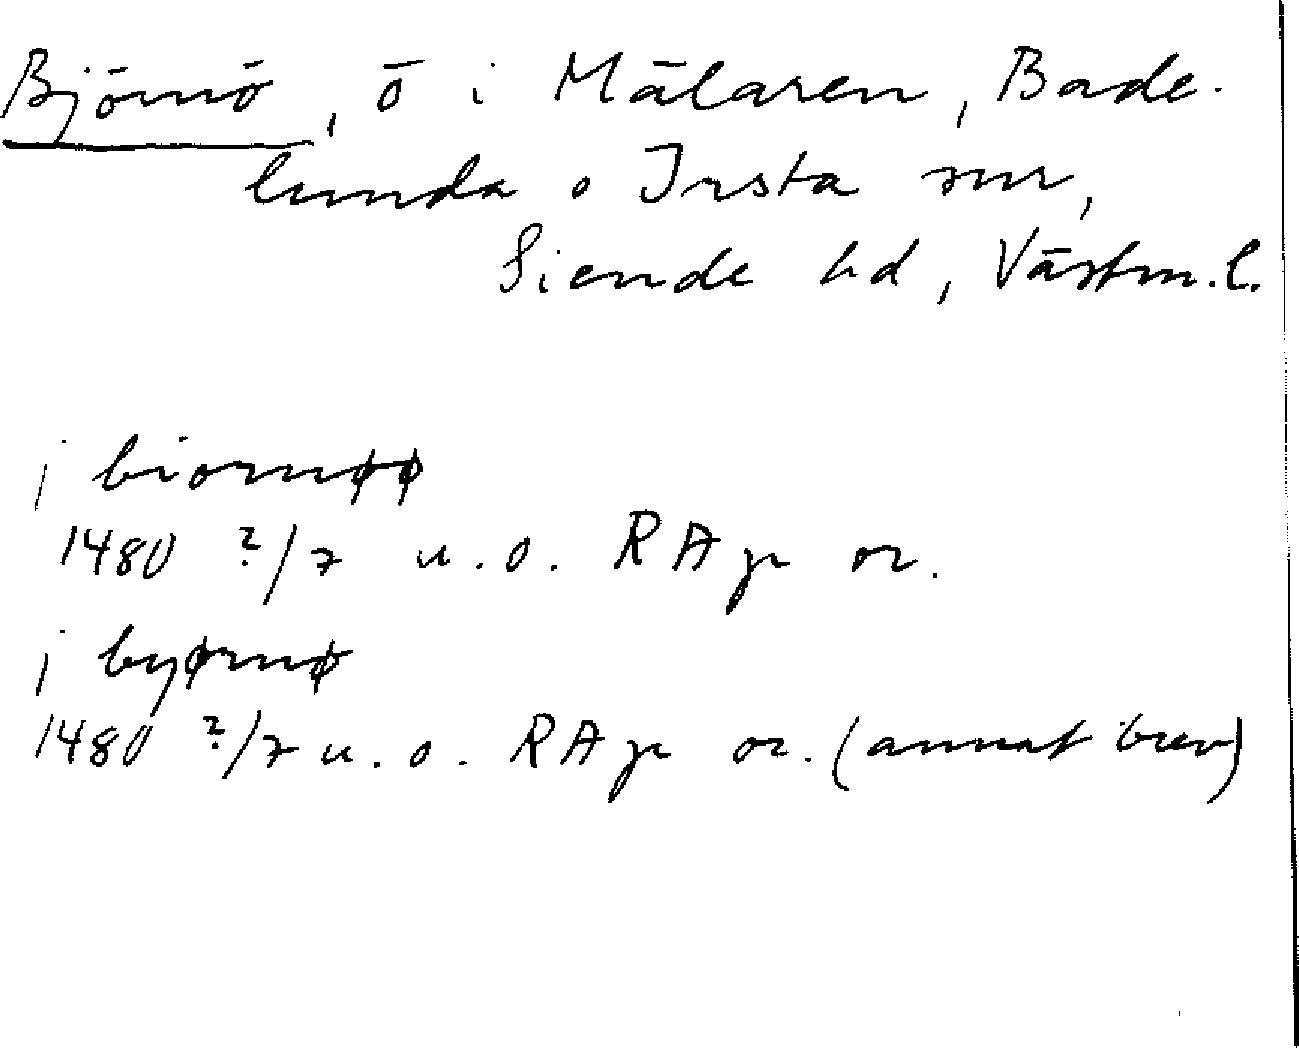 Björnö, ö i Mälaren, Bade-
lunda o Irsta snr,
Siende hd, Västm. l.
j biornøø
1480 ?/7 u.o. RAp or.
j byørnø
1480 ?/7 u.o. RAp or. (annat brev)